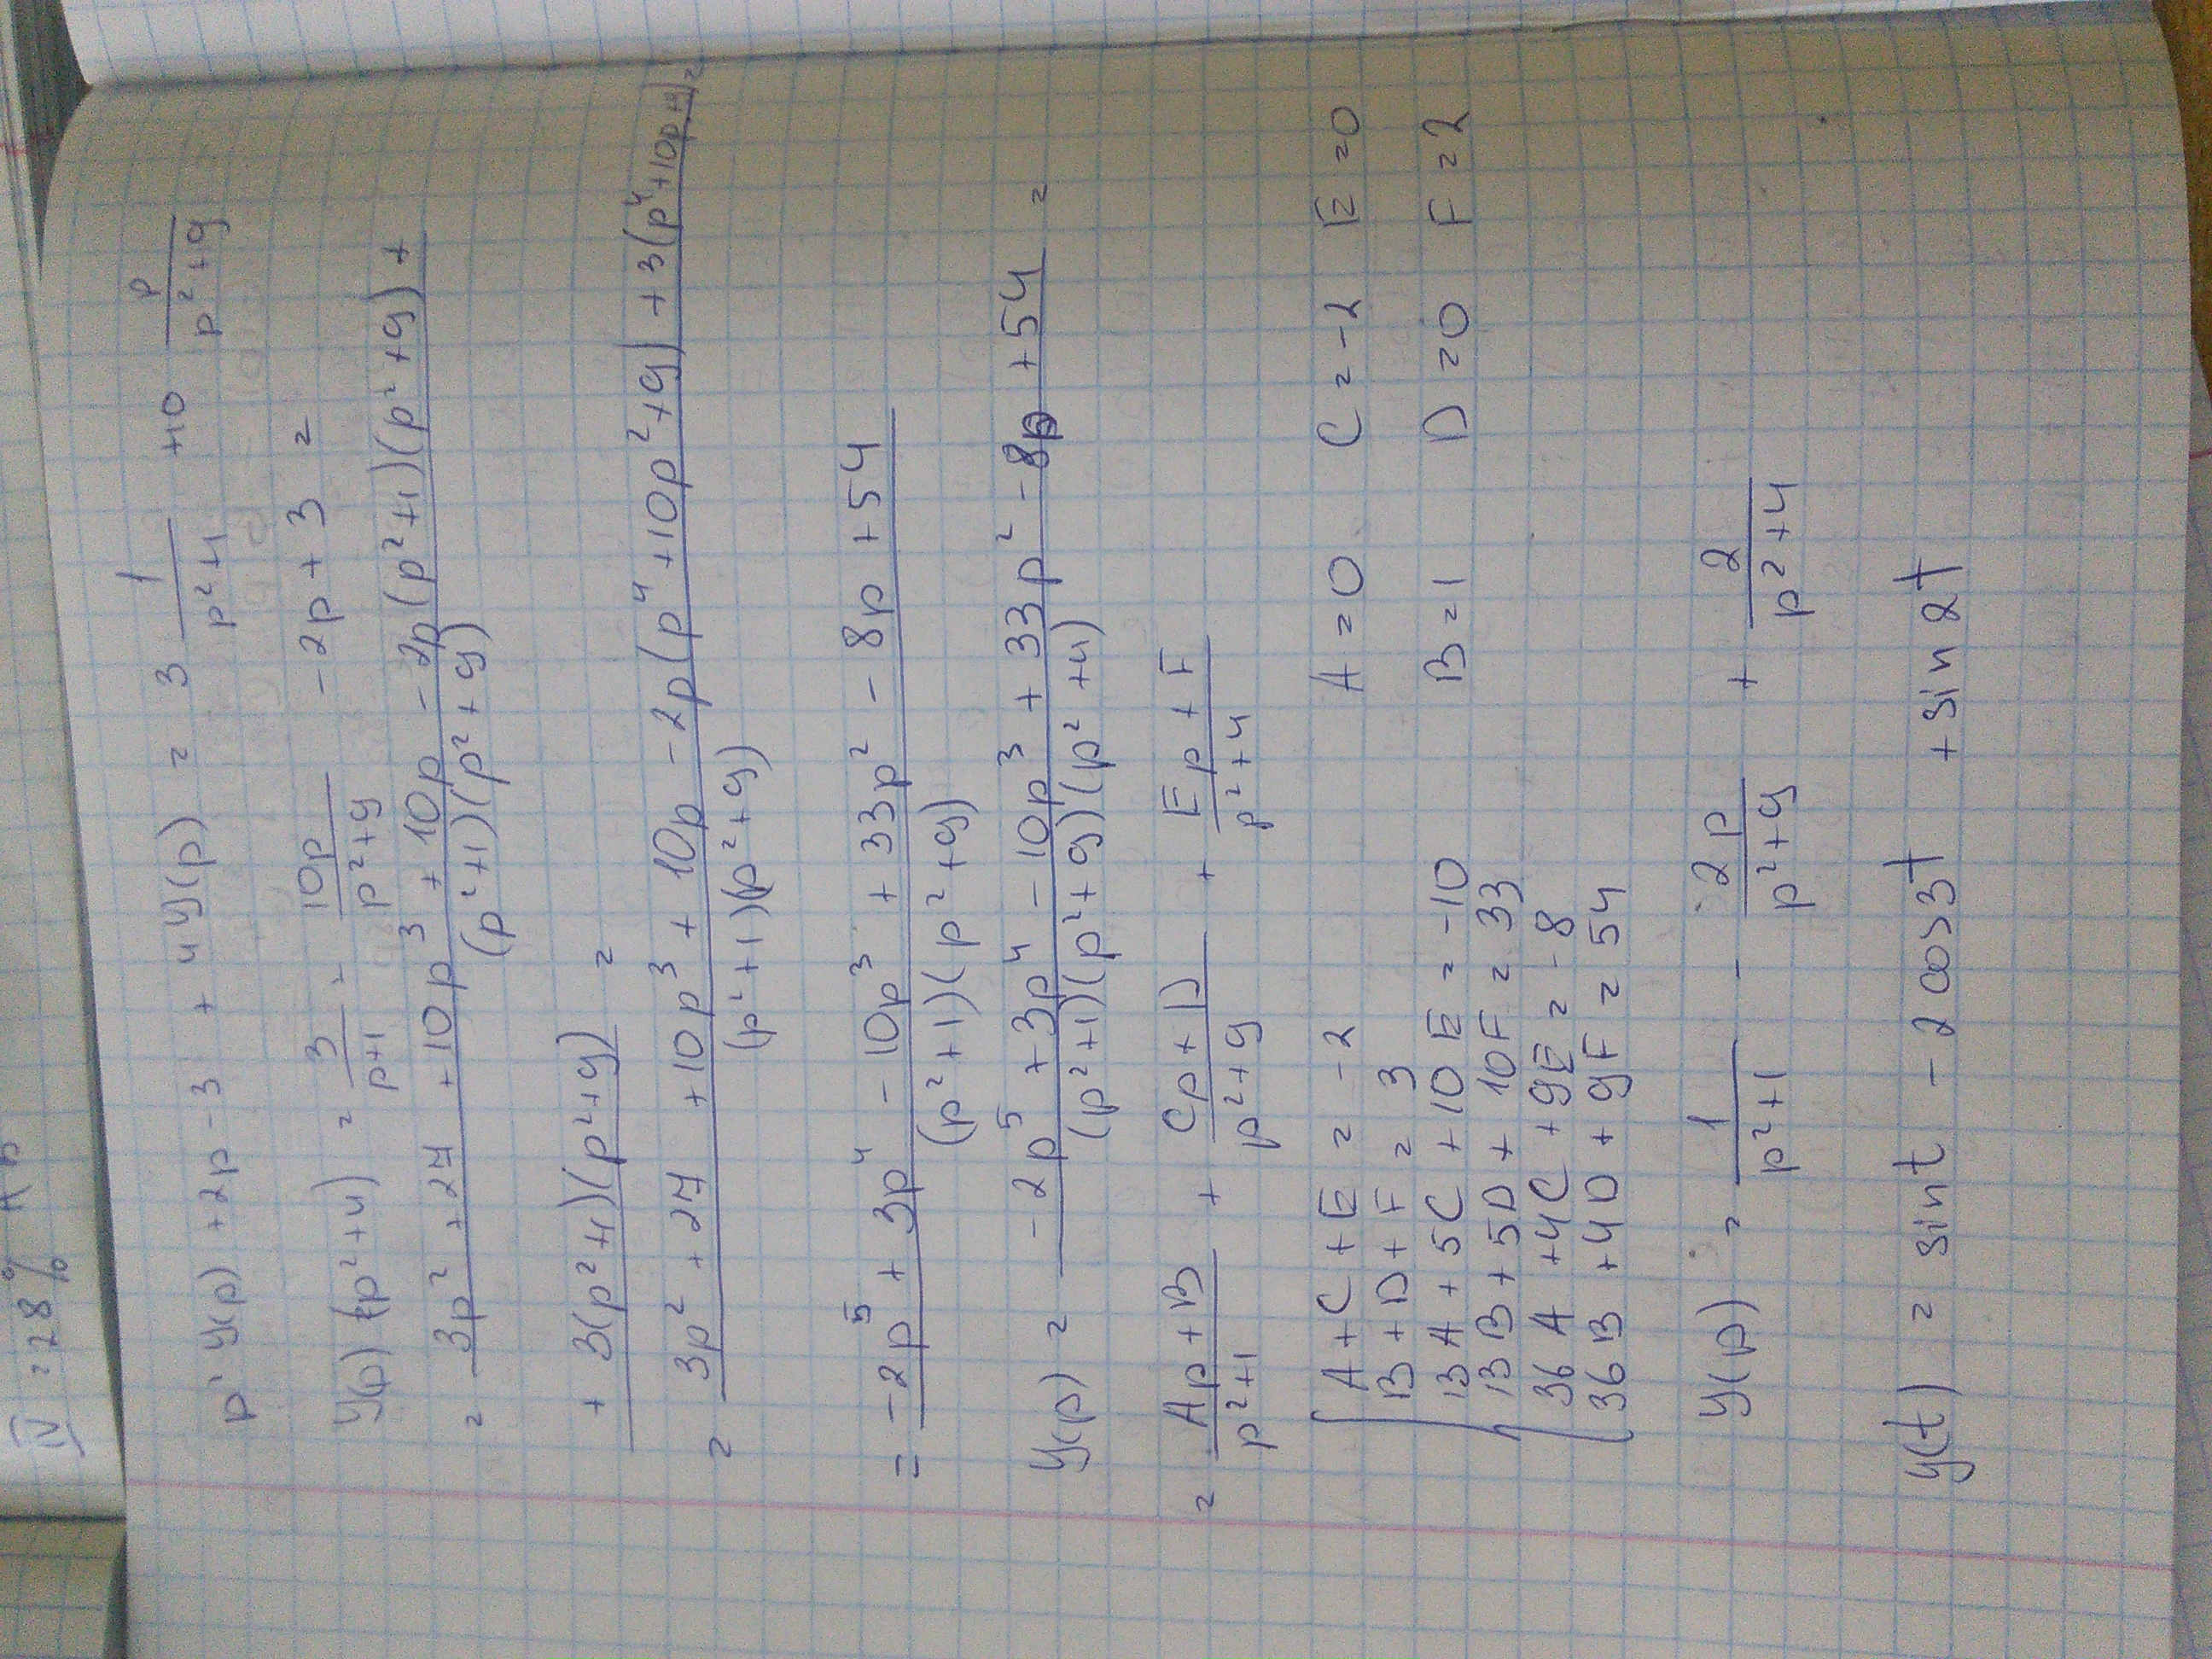 IV = 28%
p² y(p) + 2p - 3 + 4y(p) = 3 1/(p²+4) + 10 p/(p²+9)
y(p) (p²+4) = 3/(p+1) + 10p/(p²+9) - 2p + 3 =
= (3p² + 27 + 10p³ + 10p - 2p(p²+1)(p²+9) +)/((p²+1)(p²+9))
+ 3(p²+1)(p²+9) =
= (3p² + 27 + 10p³ + 10p - 2p(p⁴ + 10p² + 9) + 3(p⁴ + 10p + 9))/((p²+1)(p²+9)) =
= (-2p⁵ + 3p⁴ - 10p³ + 33p² - 8p + 54)/((p²+1)(p²+9))
y(p) = (-2p⁵ + 3p⁴ - 10p³ + 33p² - 8p + 54)/((p²+1)(p²+9)(p²+4)) =
= (Ap + B)/(p²+1) + (Cp + D)/(p²+9) + (Ep + F)/(p²+4)
A + C + E = -2 A = 0 C = -2 E = 0
B + D + F = 3
13A + 5C + 10E = -10 B = 1 D = 0 F = 2
13B + 5D + 10F = 33
36A + 4C + 9E = -8
36B + 4D + 9F = 54
y(p) = 1/(p²+1) - 2p/(p²+9) + 2/(p²+4)
y(t) = sint - 2cos3t + sin2t